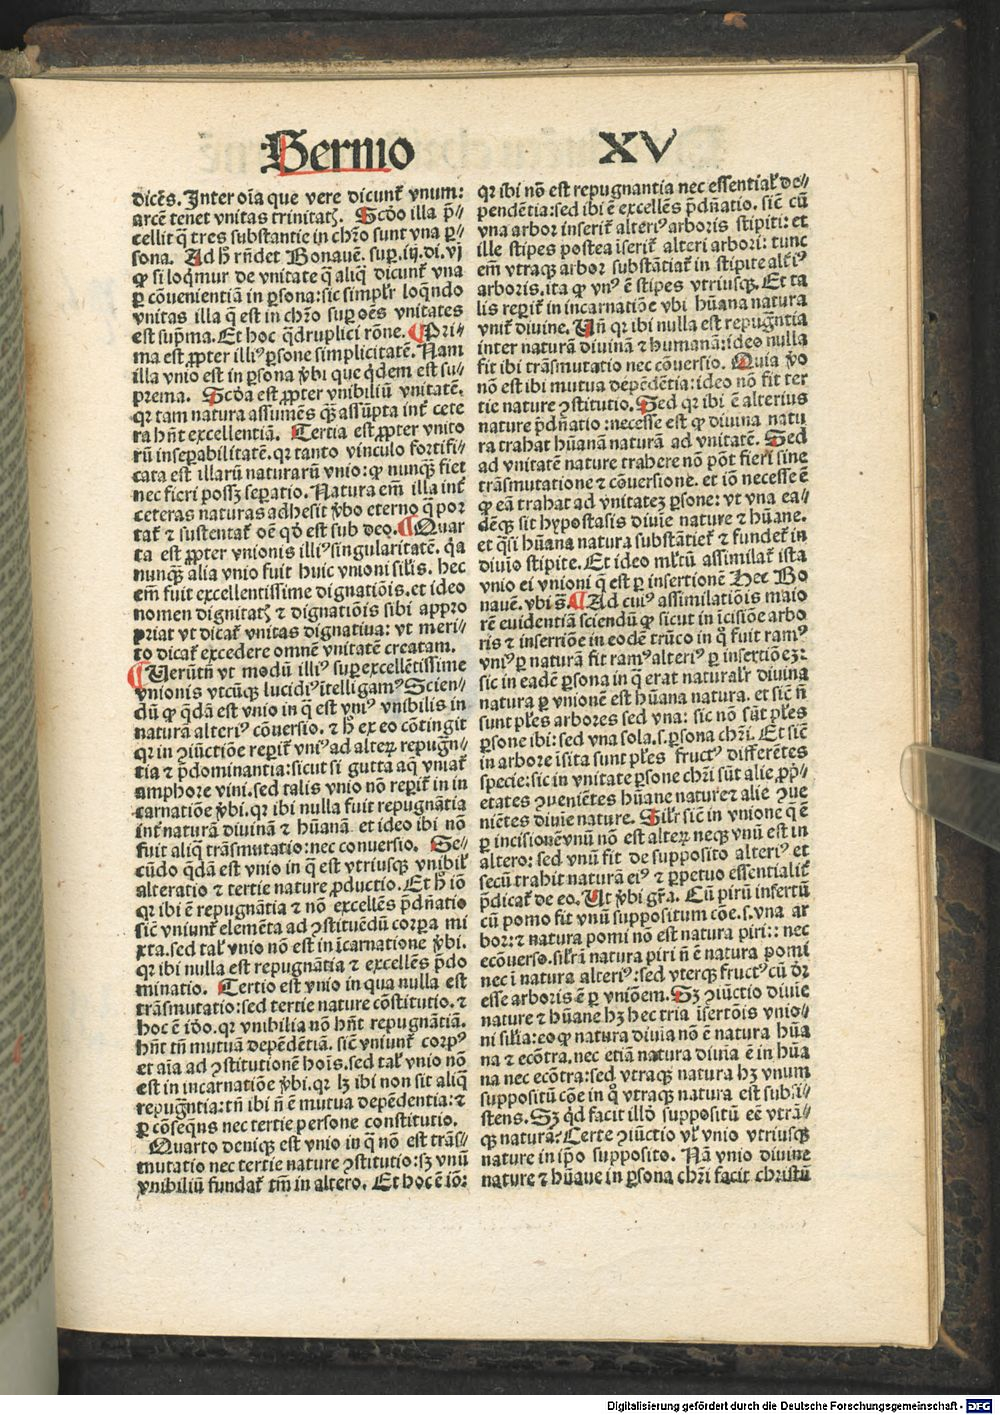 Sermo XV
dicēs. Inter oīa que vere dicunt᷑ vnum:
arcē tenet vnitas trinitatꝭ. Scḋo illa p̄-
cellit q̄ tres substantie in chr̄o sunt vna ꝑ-
sona. Ad h̄ rn̄det Bonauē. suꝑ .iij. di. vj
ꝙ si loqͣmur de vnitate q̄ aliq̄ dicunt᷑ vna
ꝑ cōuenientiā in ꝑsona: sic simplr̄ loqn̄do
vnitas illa q̄ est in chr̄o suꝑ oēs vnitates
est sup̄ma. Et hoc q̄druplici rōne. ¶ Pri-
ma est ꝓpter illiꝰ ꝑsone simplicitatē. Nam
illa vnio est in ꝑsona v̓bi que qͥdem est su-
prema. Scḋa est ꝓpter vnibiliū vnitatē.
qꝛ tam natura assumēs qͣꝫ assūpta int᷑ cete
ra hn̄t excellentiā. Tertia est ꝓpter vnito
rū inseꝑabilitatē. qꝛ tanto vinculo fortifi-
cata est illarū naturarū vnio: ꝙ nunqͣꝫ fiet
nec fieri possꝫ seꝑatio. Natura em̄ illa int᷑
ceteras naturas adhesit v̓bo eterno q̄ por
tat᷑ ⁊ sustentat᷑ oē qḋ est sub deo. ¶ Quar
ta est ꝓpter vnionis illiꝰ singularitatē. qͥa
nunqͣꝫ alia vnio fuit huic vnioni sil̓is. hec
em̄ fuit excellentissime dignatiōis. et ideo
nomen dignitatꝭ ⁊ dignatiōis sibi appro
priat vt dicat᷑ vnitas dignatiua: vt meri-
to dicat᷑ excedere omnē vnitatē creatam.
¶ Verūtn̄ vt modū illiꝰ suꝑexcellētissime
vnionis vtcūqꝫ lucidiꝰ ītelligamꝰ Scien-
dū ꝙ qͣdā est vnio in q̄ est vniꝰ vnibilis in
naturā alteriꝰ cōuersio. ⁊ h̄ ex eo cōtingit
qꝛ in ꝯiūctiōe reperit᷑ vniꝰ ad alteꝝ repugn̄-
tia ⁊ p̄dominantia: sicut si gutta aq̄ vniat᷑
amphore vini. sed talis vnio nō reperit᷑ in in
carnatiōe v̓bi. qꝛ ibi nulla fuit repugnātia
int᷑ naturā diuinā ⁊ hūanā et ideo ibi nō
fuit aliq̄ trāsmutatio: nec conuersio. Se-
cūdo qͣdā est vnio in q̄ est vtriusqꝫ vnibil̓
alteratio ⁊ tertie nature ꝓductio. Et h̄ iō
qꝛ ibi ē repugnātia ⁊ nō excellēs p̄dn̄atio
sic̄ vniunt᷑ elemēta ad ꝯstituēdū corꝑa mi
xta. sed tal̓ vnio nō est in īcarnatione v̓bi.
qꝛ ibi nulla est repugnātia ⁊ excellēs p̄do
minatio. Tertio est vnio in qua nulla est
trāsmutatio: sed tertie nature cōstitutio. ⁊
hoc ē iḋo. qꝛ vnibilia nō hn̄t repugnātiā.
hn̄t tn̄ mutuā depēdētiā. sic̄ vniunt᷑ corpꝰ
et aīa ad ꝯstitutionē hoīs. sed tal̓ vnio nō
est in incarnatiōe v̓bi. qꝛ lꝫ ibi non sit aliq̄
repugn̄tia: tn̄ ibi n̄ ē mutua depēdentia: ⁊
ꝑ cōseqn̄s nec tertie persone constitutio.
Quarto deniqꝫ est vnio in q̄ nō est trāſ-
mutatio nec tertie nature ꝯstitutio: sꝫ vnū
vnibiliū fundat᷑ tm̄ in altero. Et hoc ē iō:
qꝛ ibi nō est repugnantia nec essential̓ de-
pendētia: sed ibi ē excellēs p̄dn̄atio. sic̄ cū
vna arbor inserit᷑ alteriꝰ arboris stipiti: et
ille stipes postea īserit᷑ alteri arbori: tunc
em̄ vtraqꝫ arbor substātiat᷑ in stipite alt᷑iꝰ
arboris. ita ꝙ vnꝰ ē stipes vtriusqꝫ. Et ta
lis reperit᷑ in incarnatiōe vbi hūana natura
vnit᷑ diuine. Vn̄ qꝛ ibi nulla est repugn̄tia
inter naturā diuinā ⁊ humanā: ideo nulla
fit ibi trāsmutatio nec cōuersio. Quia v̓o
nō est ibi mutua depēdētia: ideo nō fit ter
tie nature ꝯstitutio. Sed qꝛ ibi ē alterius
nature p̄dn̄atio: necesse est ꝙ diuina natu
ra trahat hūanā naturā ad vnitatē. Sed
ad vnitatē nature trahere nō pōt fieri sine
trāsmutatione ⁊ cōuersione. et iō necesse ē
ꝙ eā trahat ad vnitateꝫ ꝑsone: vt vna ea-
dēqꝫ sit hypostasis diuīe nature ⁊ hūane.
et qͣsi hūana natura substātiet᷑ ⁊ fundet᷑ in
diuīo stipite. Et ideo ml̓tū assimilat᷑ ista
vnio ei vnioni q̄ est ꝑ insertionē Hec Bo
nauē. vbi s̄. ¶ Ad cuiꝰ assimilatiōis maio
rē euidentiā sciendū ꝙ sicut in īcisiōe arbo
ris ⁊ insertiōe in eodē trūco in qͦ fuit ramꝰ
vniꝰ ꝑ naturā fit ramꝰ alteriꝰ ꝑ insertiōeꝫ:
sic in eadē ꝑsona in q̄ erat naturalr̄ diuina
natura ꝑ vnionē est hūana natura. et sic̄ n̄
sunt pl̓es arbores sed vna: sic nō sūt pl̓es
ꝑsone ibi: sed vna sola. s. ꝑsona chr̄i. Et sic̄
in arbore īsita sunt pl̓es fructꝰ differētes
specie: sic in vnitate ꝑsone chr̄i sūt alie ꝓp̄i-
etates ꝯueniētes hūane nature ⁊ alie ꝯue
niētes diuīe nature. Sil̓r sic̄ in vnione q̄ ē
ꝑ incisionē vnū nō est alteꝝ neqꝫ vnū est in
altero: sed vnū fit de supposito alteriꝰ et
secū trahit naturā eiꝰ ⁊ ꝑpetuo essentialit᷑
p̄dicat᷑ de eo. Vt v̓bi gr̄a. Cū pirū insertū
cū pomo fit vnū suppositum cōe. s. vna ar
bor: ⁊ natura pomi nō est natura piri: nec
ecōuerso. sil̓r ā natura piri n̄ ē natura pomi
nec ī natura alteriꝰ: sed vterqꝫ fructꝰ cū ḋr
esse arboris ē ꝑ vniōem. Sꝫ ꝯiūctio diuīe
nature ⁊ hūane hꝫ hec tria īsertōis vnio-
ni sil̓ia: eo ꝙ natura diuīa nō ē natura hūa
na ⁊ ecōtra. nec etiā natura diuīa ē in hūa
na nec ecōtra: sed vtraqꝫ natura hꝫ vnum
suppositū cōe in qͦ vtraqꝫ natura est subsi-
stens. Sꝫ qͥd facit illḋ suppositū eē vtrā-
qꝫ naturā? Certe ꝯiūctio vl̓ vnio vtriusqꝫ
nature in ip̄o supposito. Nā vnio diuine
nature ⁊ hūane in ꝑsona chr̄i facit christū
Digitalisierung gefördert durch die Deutsche Forschungsgemeinschaft - DFG